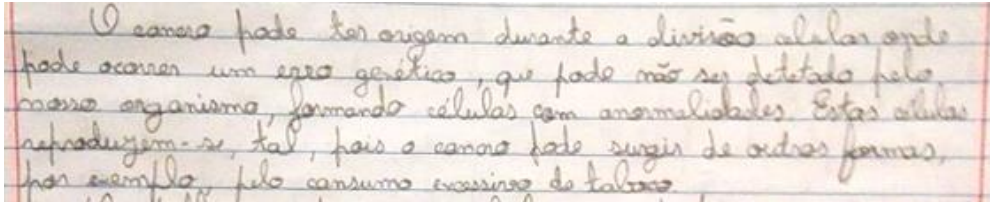 O cancro pode ter origem durante a divisão celular onde
pode ocorrer um erro genético, que pode não ser detetado pelo
nosso organismo, formando células com anormalidades. Estas células
reproduzem-se, tal, pois o cancro pode surgir de outras formas,
por exemplo, pelo consumo excessivo do tabaco.